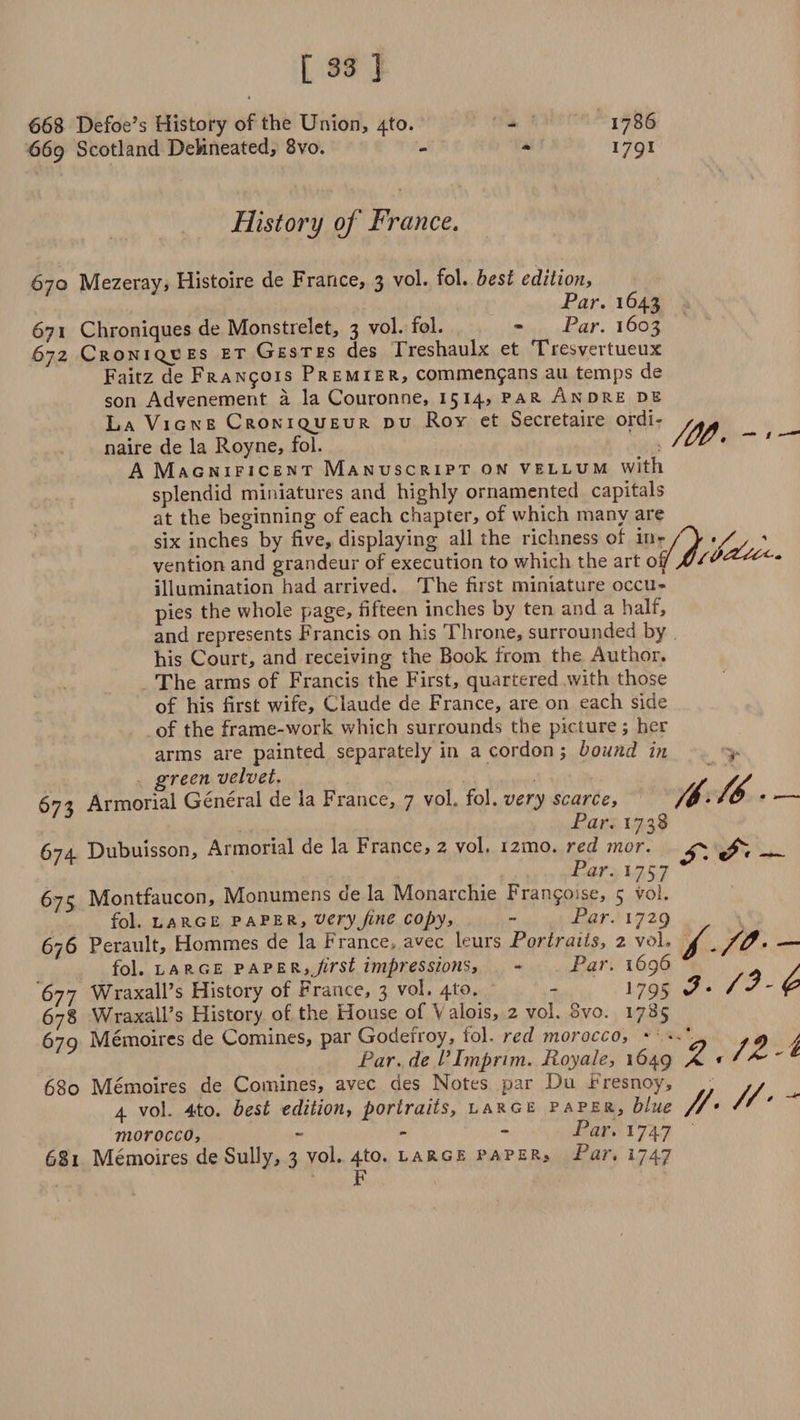 [ 33 ]
668 Defoe's History of the Union, 4to. - 1786
669 Scotland Delineated, 8vo. - - 1791
History of France.
670 Mezeray, Histoire de France, 3 vol. fol. best edition,
Par. 1643
671 Chroniques de Monstrelet, 3 vol. fol. - Par. 1603
672 CRONIQUES ET GESTES des Treshaulx et Tresvertueux
Faitz de FRANÇOIS PREMIER, commençans au temps de
son Advenement à la Couronne, 1514, PAR ANDRE DE
LA VIGNE CRONIQUEUR DU Roy et Secretaire ordi-
naire de la Royne, fol. 100. - -
A MAGNIFICENT MANUSCRIPT ON VELLUM with
splendid miniatures and highly ornamented capitals
at the beginning of each chapter, of which many are
six inches by five, displaying all the richness of in-
vention and grandeur of execution to which the art of
illumination had arrived. The first miniature occu-
pies the whole page, fifteen inches by ten and a half,
and represents Francis on his Throne, surrounded by
his Court, and receiving the Book from the Author.
The arms of Francis the First, quartered with those
of his first wife, Claude de France, are on each side
of the frame-work which surrounds the picture; her
arms are painted separately in a cordon; bound in
green velvet.
673 Armorial Général de la France, 7 vol. fol. very scarce, 16.16.—
Par. 1738
674 Dubuisson, Armorial de la France, 2 vol. 12mo. red mor. 5. 5. —
Par. 1757
675 Montfaucon, Monumens de la Monarchie Françoise, 5 vol.
fol. LARGE PAPER, very fine copy, - Par. 1729
676 Perault, Hommes de la France, avec leurs Portraits, 2 vol. 10. —
fol. LARGE PAPER, first impressions, - Par. 1696
677 Wraxall's History of France, 3 vol. 4to. - 1795 3. 13-6
678 Wraxall's History of the House of Valois, 2 vol. 8vo. 1785
679 Mémoires de Comines, par Godefroy, fol. red morocco, -
Par. de l'Imprim. Royale, 1649 2. 12-6
680 Mémoires de Comines, avec des Notes par Du Fresnoy,
4 vol. 4to. best edition, portraits, LARGE PAPER, blue 11. 11. -
morocco, - - - Par. 1747
681 Mémoires de Sully, 3 vol. 4to. LARGE PAPER, Par. 1747
F